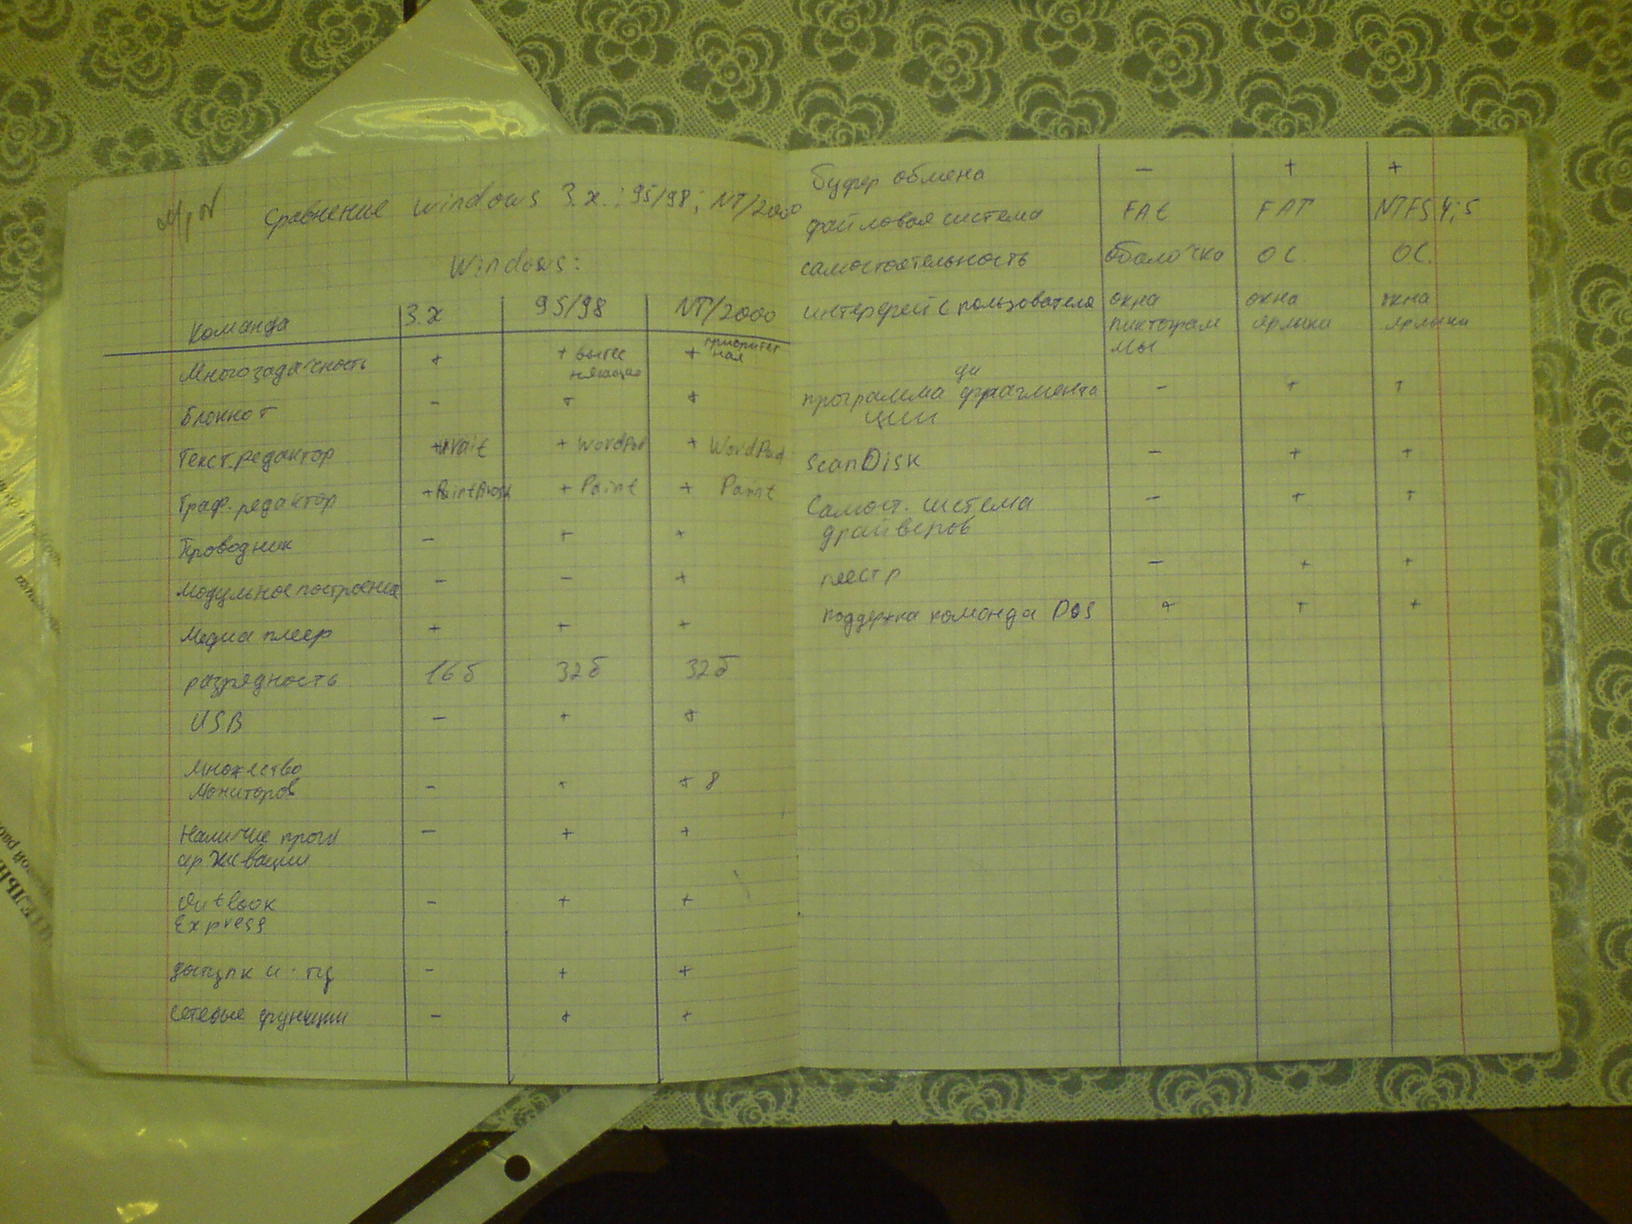 Сравнение Windows 3.x.; 95/98; NT/2000
Windows:
Команда 3.x 95/98 NT/2000
Многозадачность + + вытес няющая + приоритет ная
Блокнот - + +
Текст.редактор + Wrait + WordPad + WordPad
Граф. редактор + PaintBrosh + Paint + Paint
Проводник - + +
Модульное построение - - +
Медиа плеер + + +
разрядность 16б 32б 32б
USB - + +
Множество
Мониторов - + + 8
Наличие прогр - + +
архивации
Outlook - + +
Express
- + +
сетевые функции - + +
буфер обмена - + +
файловая система FAt FAT NTFS 4;5
самостоятельность оболочка ОС ОС.
интерфейс с пользователя окна окна окна
пиктограм ярлыки ярлыки
мы
де
программа фрагмента - + +
ции
ScanDisk - + +
Самост. система - + +
драйверов
реестр - + +
поддержка команда DOS + + +